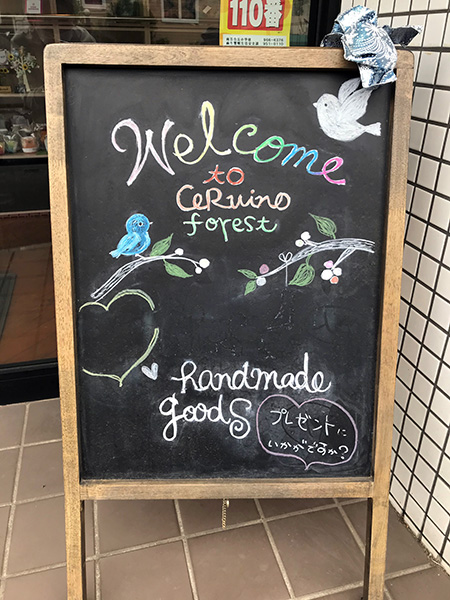 110番
Welcome
to
CeRuino
forest
handmade
goodS
プレゼントに
いかがですか?